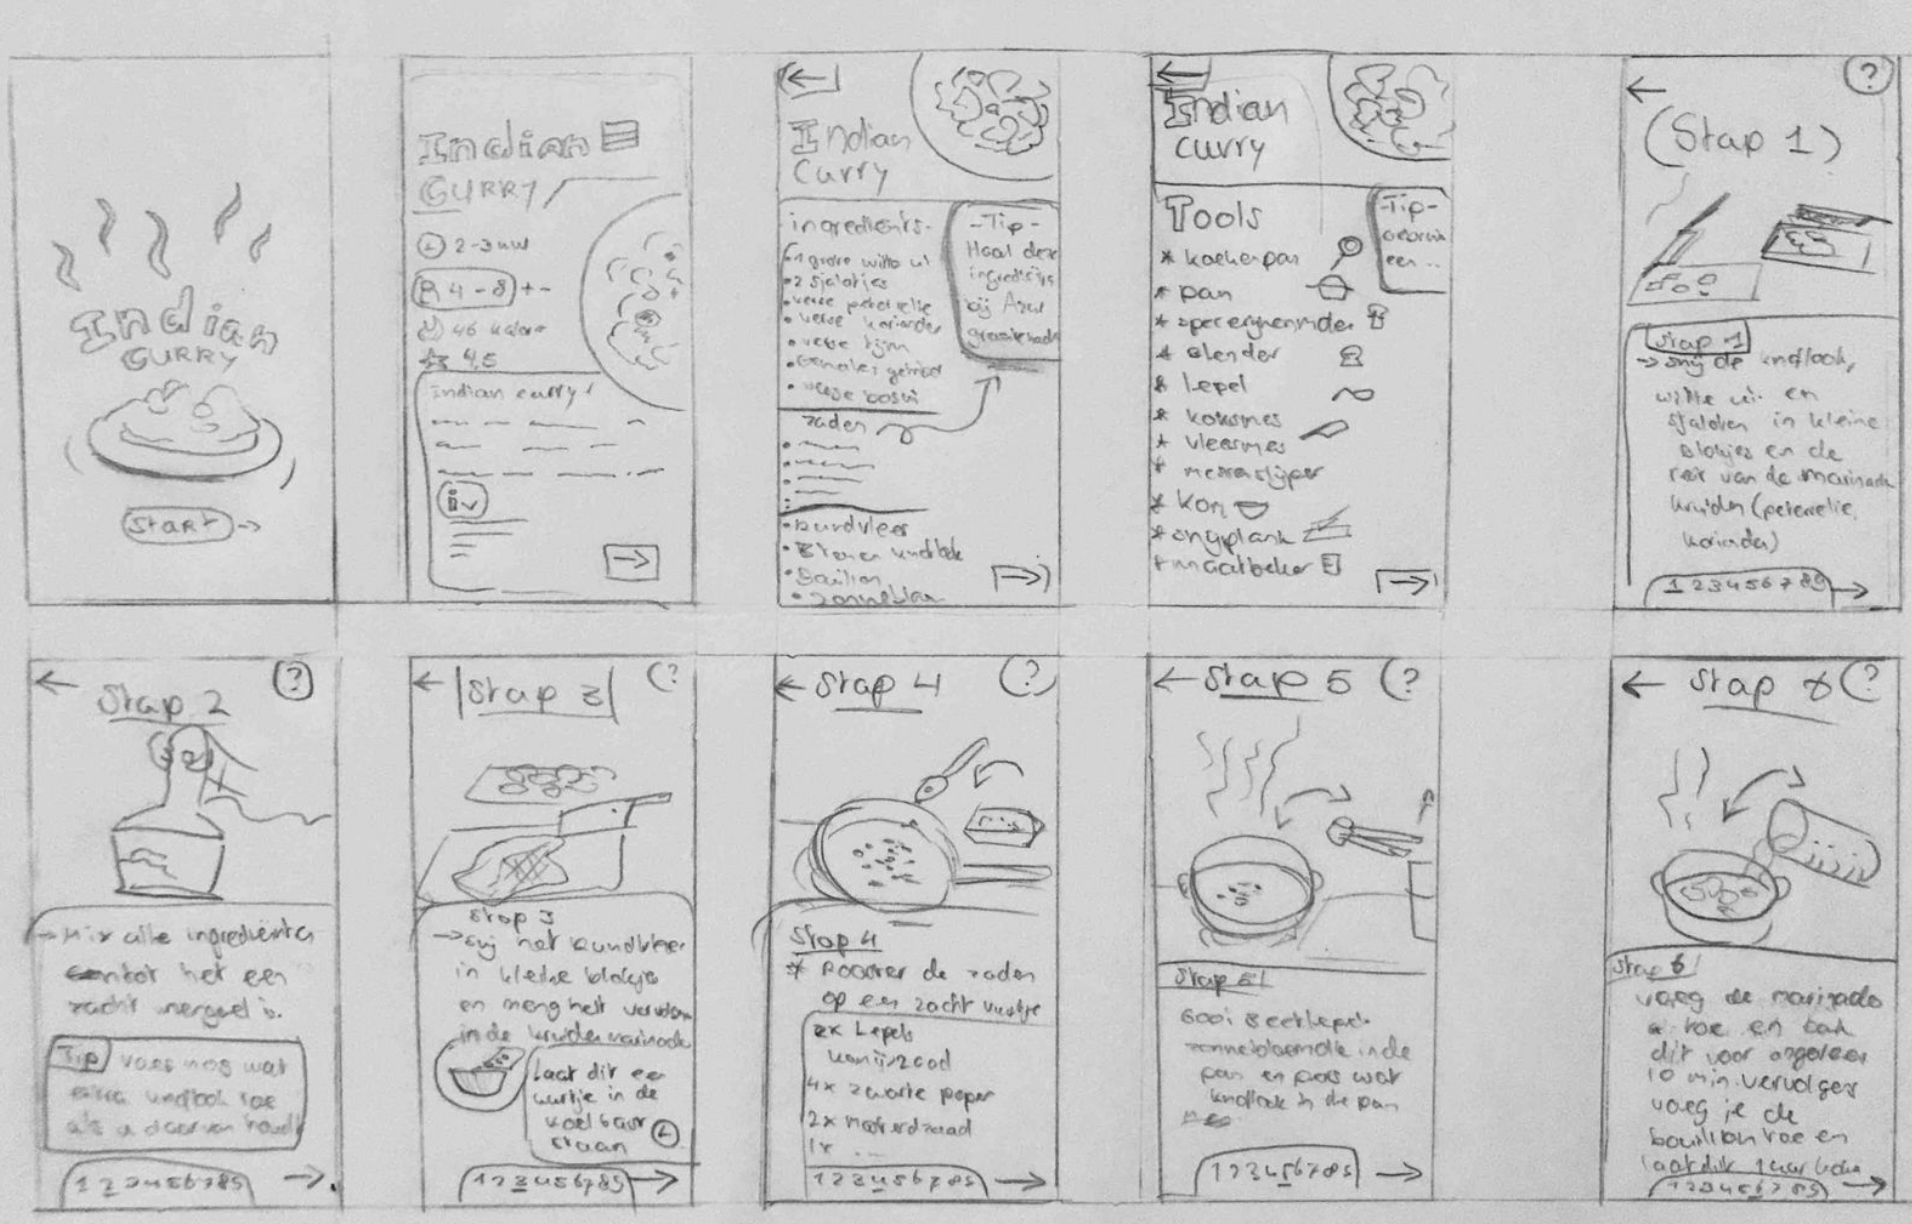 Indian
CURRY
START
Indian
CURRY
2-3 uur
4-8 + -
4,5
Indian curry!
i
Indian
Curry
ingredients-
2 sjalotjes
verse peterselie
verse koriander
verse tijm
zaden
Bouillon
-Tip-
Haal deze
bij
Indian
curry
Tools
* koekenpan
* pan
* blender
* lepel
* koksmes
* vleesmes
* messenslijper
* kom
* snijplank
* maatbeker
-Tip-
een ..
?
(Stap 1)
Stap 1
→ snij de knoflook,
witte ui en
sjalotten in kleine
blokjes en de
rest van de marinade
kruiden (peterselie,
koriander)
1 2 3 4 5 6 7 8 9
?
Stap 2
→ Mix alle ingrediënten
tot het een
zacht mengsel is.
Tip voeg nog wat
extra knoflook toe
als u daarvan houdt
1 2 3 4 5 6 7 8 9
?
Stap 3
Stap 3
→ snij het rundvlees
in kleine blokjes
en meng het vervolgens
in de kruidenmarinade
Laat dit een
uurtje in de
koelkast
staan
1 2 3 4 5 6 7 8 9
?
Stap 4
Stap 4
* Rooster de zaden
op een zacht vuurtje
2x Lepels
4x zwarte peper
2x mosterdzaad
1x ...
1 2 3 4 5 6 7 8 9
?
Stap 5
Stap 5
Gooi 8 eetlepels
zonnebloemolie in de
pan en pers wat
knoflook in de pan
1 2 3 4 5 6 7 8 9
?
Stap 6
Stap 6
voeg de marinade
toe en bak
dit voor ongeveer
10 min. vervolgens
voeg je de
bouillon toe en
laat dit 1 uur
1 2 3 4 5 6 7 8 9